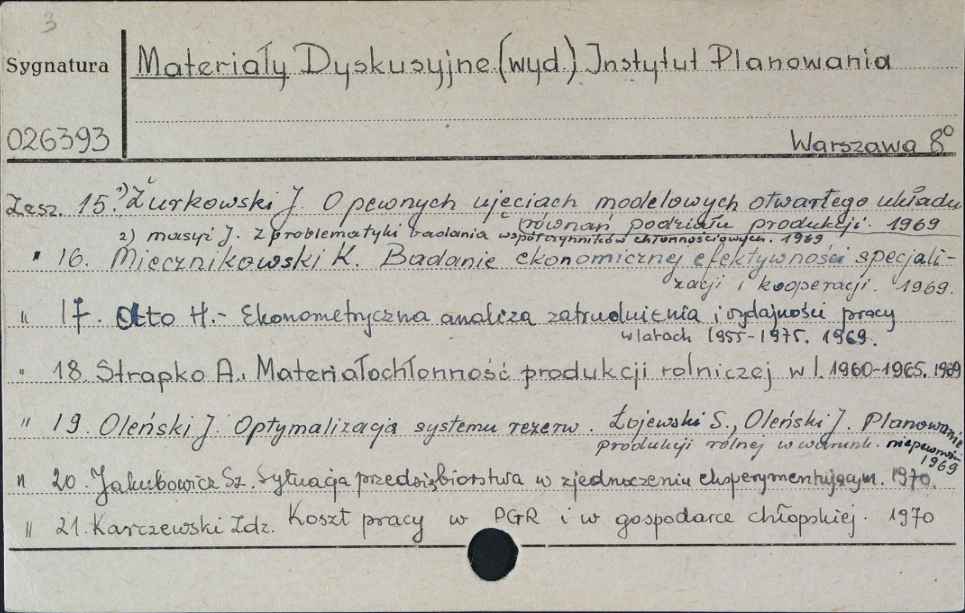 3
Sygnatura Materiały Dyskusyjne (wyd.) Instytut Planowania
026393 Warszawa 8°
Zesz. 15. 1) Żurkowski J. O pewnych ujęciach modelowych otwartego układu
równań podziału produkcji. 1969
2) J. Z problematyki badania współczynników chłonnościowych. 1969
" 16. Miecznikowski K. Badanie ekonomicznej efektywności specjali-
zacji i kooperacji. 1969.
" 17. Otto H. - Ekonometryczna analiza zatrudnienia i wydajności pracy
w latach 1955-1975. 1969.
" 18. Strapko A., Materiałochłonność produkcji rolniczej w l. 1960-1965. 1969
" 19. Oleński J. Optymalizacja systemu rezerw. Łojewski S., Oleński J. Planowanie
produkcji rolnej w warunk. niepewności
1969
" 20. Jakubowicz Sz. Sytuacja przedsiębiorstwa w zjednoczeniu eksperymentującym. 1970.
" 21. Karczewski Zdz. Koszt pracy w PGR i w gospodarce chłopskiej. 1970